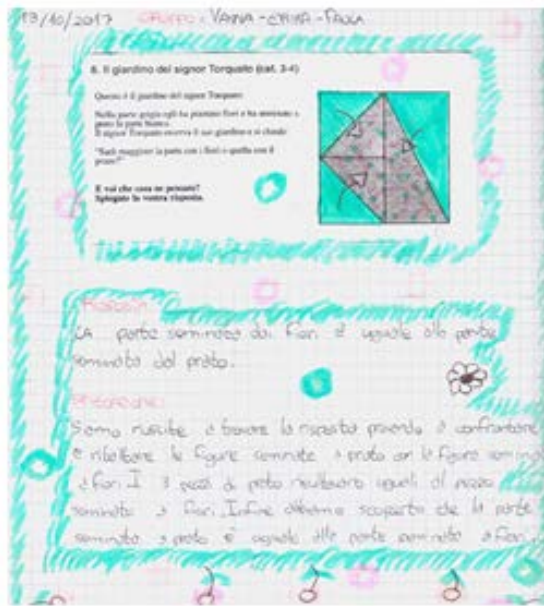 13/10/2017 GRUPPO: VANNA - - PAOLA
8. Il giardino del signor Torquato (cat. 3-4)
Questo è il giardino del signor Torquato:
Nella parte grigia egli ha piantato fiori e ha seminato a
prato la parte bianca.
Il signor Torquato osserva il suo giardino e si chiede:
"Sarà maggiore la parte con i fiori o quella con il
prato?"
E voi che cosa ne pensate?
Spiegate la vostra risposta.
LA parte seminata dai fiori è uguale alla parte
seminata dal prato.
Siamo riuscite a trovare la risposta provando a confrontare
e ribaltare le figure seminate a prato con le figure
a fiori. I 3 pezzi di prato risultavano uguali al pezzo
seminato a fiori. Infine abbiamo scoperto che la parte
seminata a prato è uguale alla parte seminata a fiori.